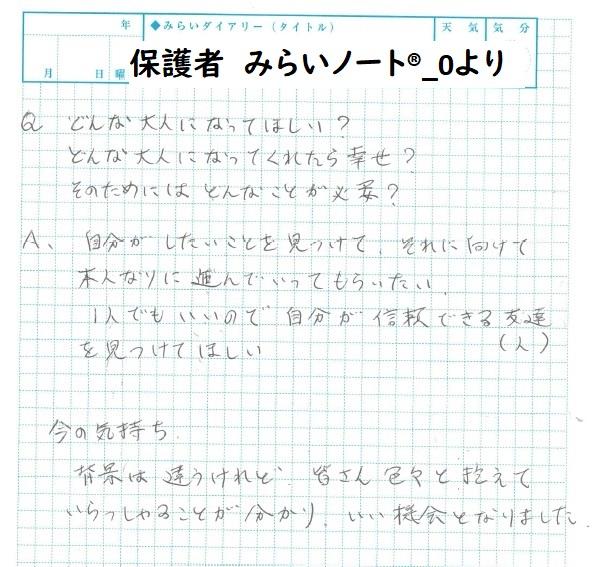 年 ◆みらいダイアリー（タイトル） 天気 気分
月 日 曜 保護者 みらいノート®_0より
Q どんな大人になってほしい？
どんな大人になってくれたら幸せ？
そのためにはどんなことが必要？
A、自分がしたいことを見つけて、それに向けて
本人なりに進んでいってもらいたい。
1人でもいいので自分が信頼できる友達
(人)
を見つけてほしい
今の気持ち
背景は違うけれど、皆さん色々と抱えて
いらっしゃることが分かり、いい機会となりました。